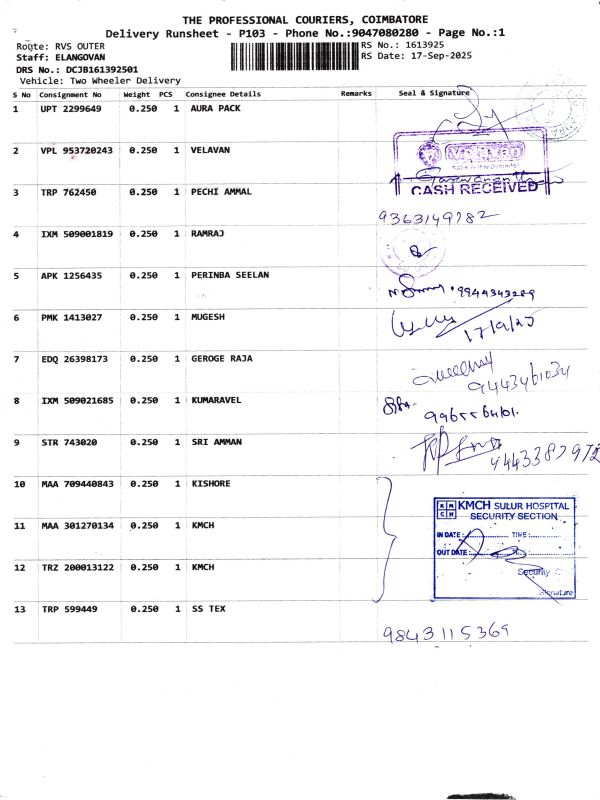 THE PROFESSIONAL COURIERS, COIMBATORE
Delivery Runsheet - P103 - Phone No.:9047080280 - Page No.:1
Route: RVS OUTER
RS No.: 1613925
Staff: ELANGOVAN
RS Date: 17-Sep-2025
DRS No.: DCJB161392501
Vehicle: Two Wheeler Delivery
S No Consignment No Weight PCS Consignee Details Remarks Seal & Signature
1 UPT 2299649 0.250 1 AURA PACK
2 VPL 953720243 0.250 1 VELAVAN
CASH RECEIVED
3 TRP 762450 0.250 1 PECHI AMMAL
9363149782
4 IXM 509001819 0.250 1 RAMRAJ
5 APK 1256435 0.250 1 PERINBA SEELAN
9944343289
6 PMK 1413027 0.250 1 MUGESH
17/9/25
7 EDQ 26398173 0.250 1 GEROGE RAJA
9443461034
8 IXM 509021685 0.250 1 KUMARAVEL
9 STR 743020 0.250 1 SRI AMMAN
9443387972
10 MAA 709440843 0.250 1 KISHORE
KMCH SULUR HOSPITAL
SECURITY SECTION
11 MAA 301270134 0.250 1 KMCH
IN DATE: TIME:
OUT DATE:
12 TRZ 200013122 0.250 1 KMCH
Security
Signature
13 TRP 599449 0.250 1 SS TEX
9843115369